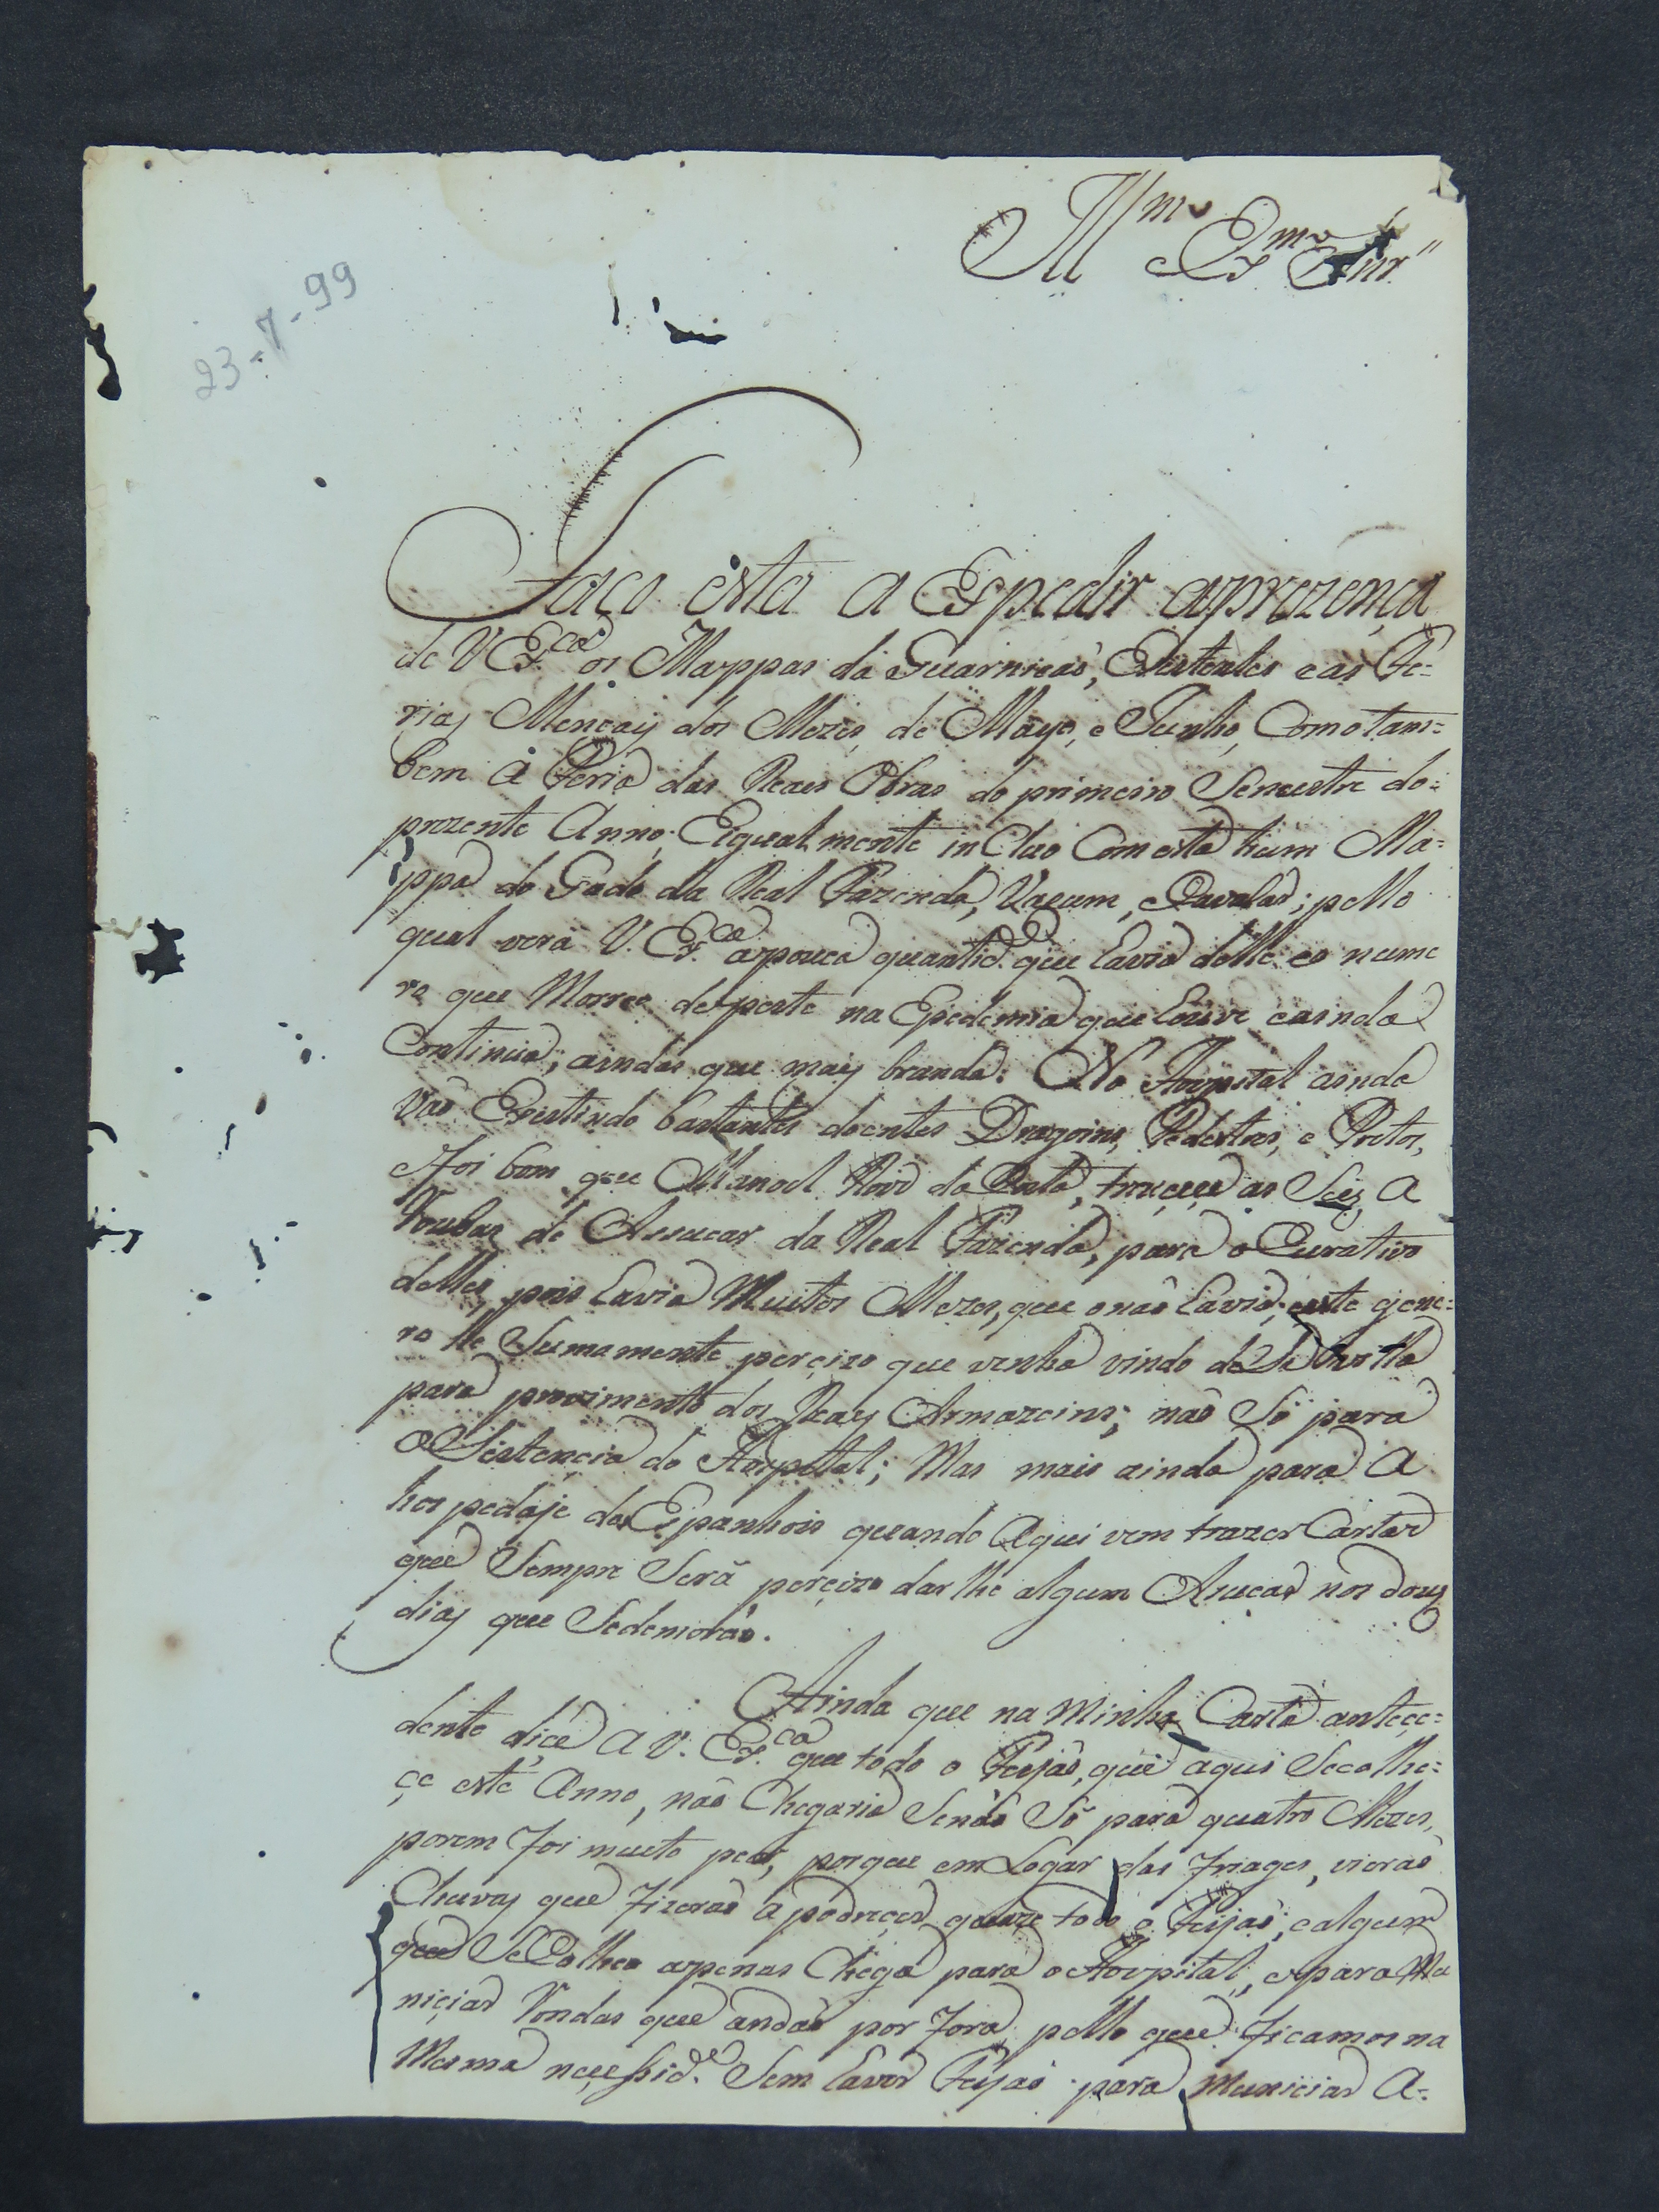 Illmo Exmo Snr"
23-7-99
Faço esta a Espedir aprezença
de V Ex.ca os Mappas da Guarniçaõ, Existentes e as Fe=
rias Mençais dos Mezes, de Mayo, e Junho, Como tam=
bem a Feria das Reaes Obras do primeiro Semestre do=
prezente Anno; Eigualmente incluo Com esta hum Ma=
ppa do Gado da Real Fazenda, Vacum, e Cavalar; pello
qual verá V. Ex.ca apouca quantid.e que Cavia delle eo nume
ro que Morreo de peste na Epedemia que Couve eainda
Continúa; ainda que mais branda: No Hospital ainda
Vaõ Existindo bastantes doentes Dragoins, Pedestres, e Pretos,
e foi bom que Manoel Roiz da Costa, trucçe as Seis A
roubas de Assucar da Real Fazenda, para o Curativo
delles, pois Cavia Muitos Mezes, que onaõ Cavia; este gene=
ro he Sumamente perçizo que venha vindo de
para provimento dos Reays Armazeins; naõ Só para
a Sistencia do Hospital; Mas mais ainda para a
hospedaje dos Espanhois quando Aqui vem trazer Cartas
que Sempre Será perçizo darlhe algum Asucar nos dous
dias que Sedemoraõ.
Ainda que na Minha Carta anteçe=
dente diçe a V. Ex.ca que todo o Feijaõ, que aqui Secolhe=
çe este Anno, naõ Chegaria Senaõ Só para quatro Mezes,
porem foi muito peor, porque em Logar das friages, vieraõ
Chuvas que fizeraõ apodreçer quaze todo o Feijaõ; e algum
que SeColheo apenas Chega para o Hospital, e para Mu
niçiar Rondas que andaõ por fora pello que ficamos na
Mesma neçessid.e Sem Caver Feijaõ para Muniçiar A=